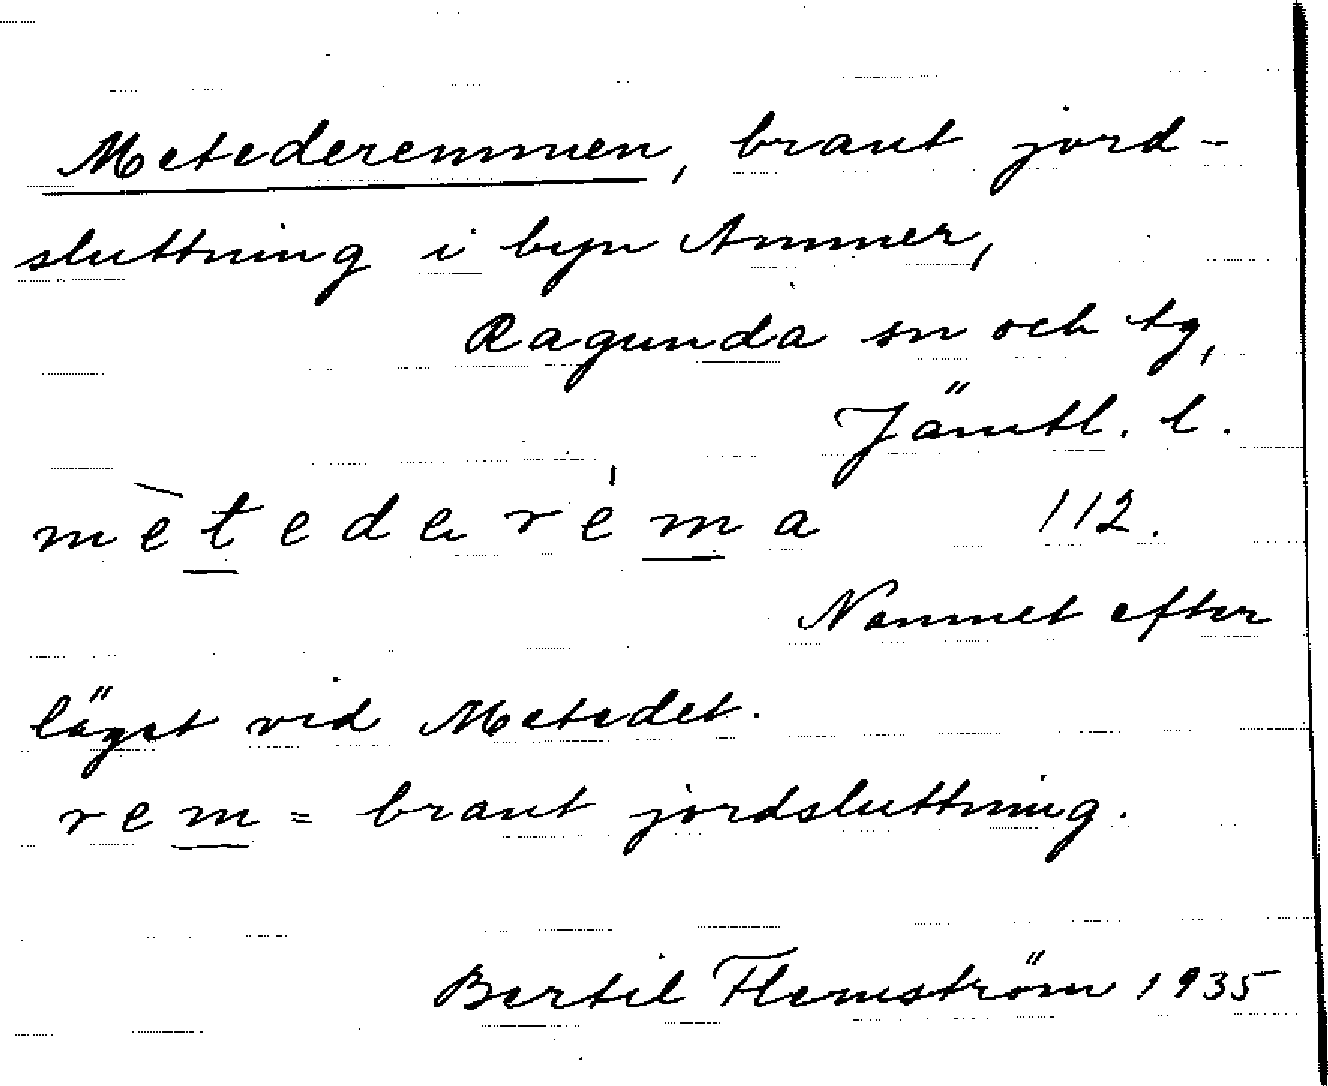 Metederemmen, brant jord-
sluttning i byn Ammer,
Ragunda sn och tg,
Jämtl. l.
mètederéma 112.
Namnet efter
läget vid Metedet.
rem = brant jordsluttning.
Bertil Flemström 1935